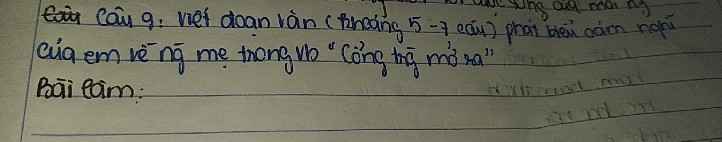 cuộc sống của mỗi ng
Câu 9: viết đoạn văn (khoảng 5-7 câu) phát biểu cảm nghĩ
của em về ng mẹ trong vb "Cổng trg mở ra"
Bài làm: